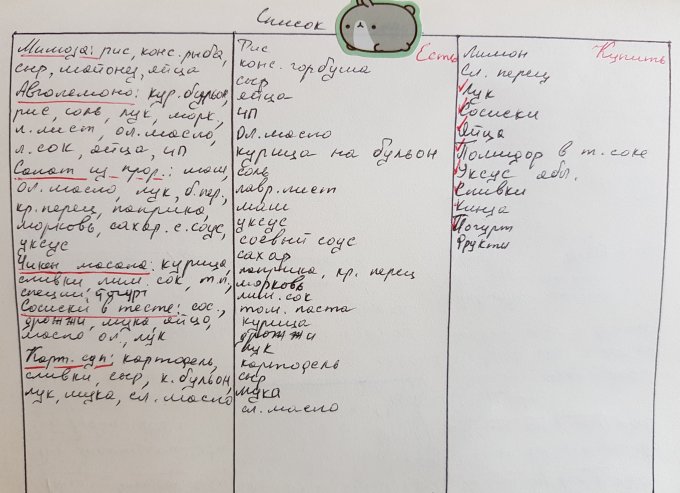 Список
Мимоза: рис, конс. рыба,
сыр, майонез, яйца
Авголемоно: кур. бульон,
рис, соль, лук, морк,
л. лист, ол. масло,
л. сок, яйца, ЧП
Салат из прор.: маш,
ол. масло, лук, б. пер.,
кр. перец, паприка,
морковь, сахар. с. соус,
уксус
Чикен масала: курица,
сливки, лим. сок, т.п,
специи, йогурт
Сосиски в тесте: сос.,
дрожжи, мука, яйцо,
масло ол, лук
Карт. суп: картофель,
сливки, сыр, к. бульон,
лук, мука, сл. масло
Есть
Рис
конс. горбуша
сыр
яйца
ЧП
Ол. масло
курица на бульон
соль
лавр. лист
маш
уксус
соевый соус
сахар
паприка, кр. перец
морковь
лим. сок
том. паста
курица
дрожжи
лук
картофель
сыр
мука
сл. масло
Купить
Лимон
Сл. перец
Лук
Сосиски
Яйца
Помидор в т. соке
Уксус ябл.
Сливки
Кинза
Йогурт
Фрукты